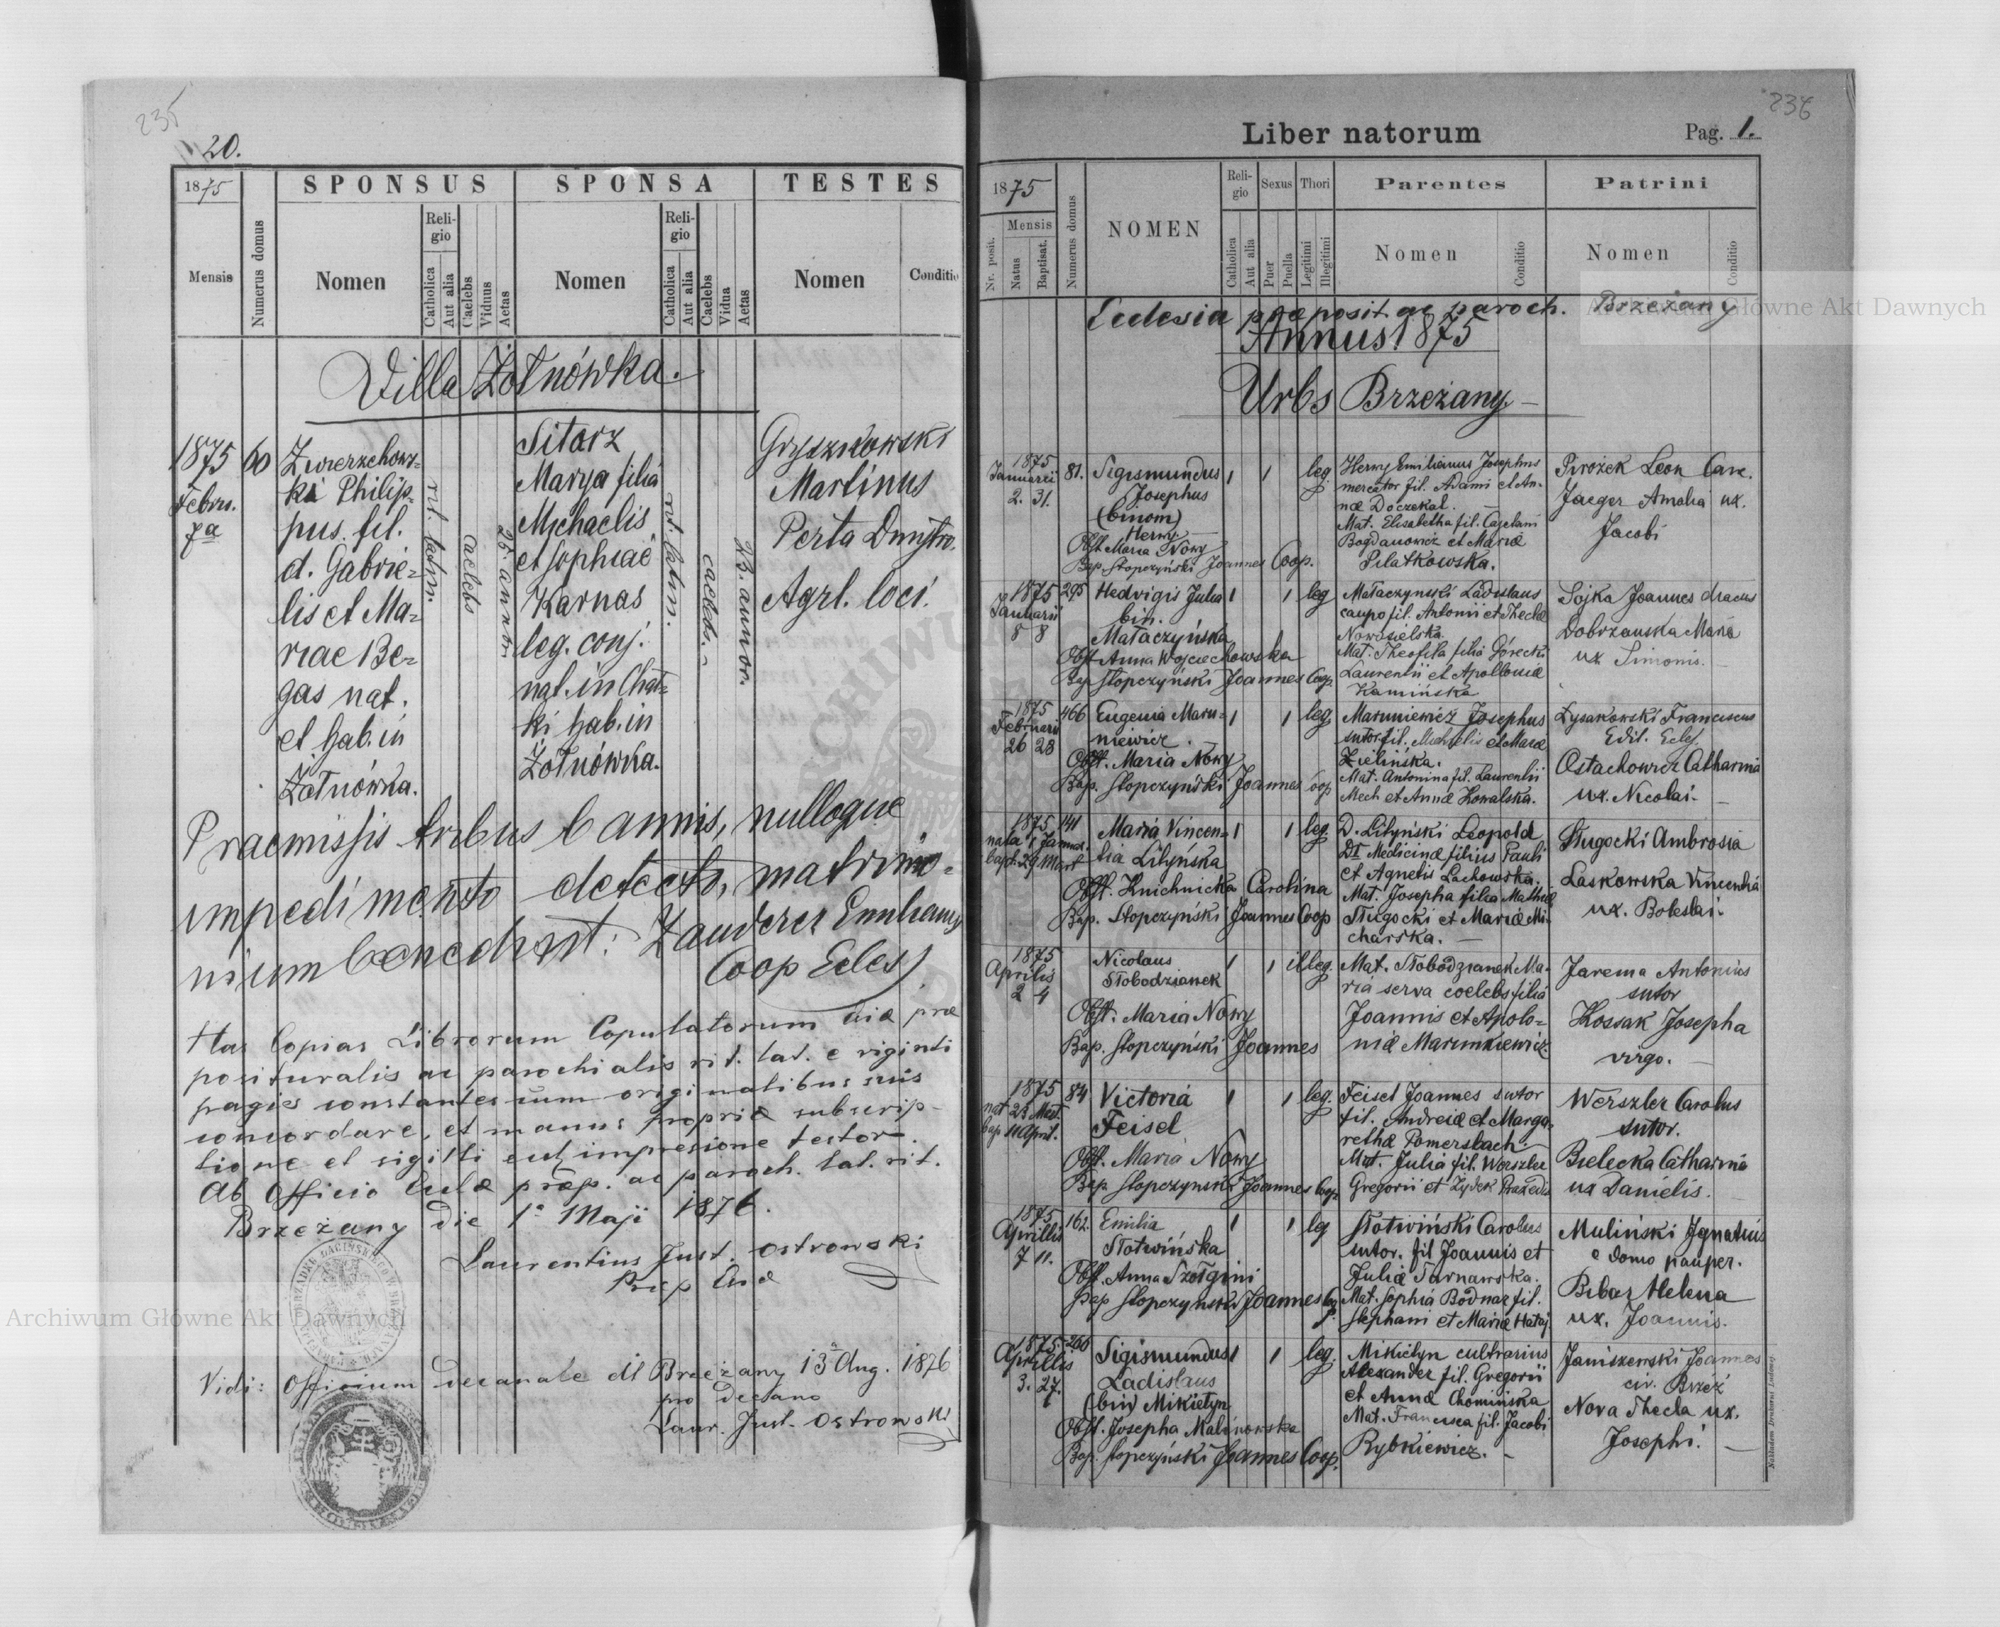 235
20.
1875
SPONSUS
SPONSA
TESTES
Mensis
Numerus domus
Nomen
Religio
Catholica
Aut alia
Caelebs
Viduus
Aetas
Nomen
Religio
Catholica
Aut alia
Caelebs
Vidua
Aetas
Nomen
Conditio
Villa Żołnówka.
1875
Febru.
7a
60
Zwierzchows-
ki Philip-
pus. fil.
d. Gabrie-
lis et Ma-
riae Be-
gas nat.
et hab. in
Żołnówka.
rit. latin.
caelebs
25. annor.
Sitarz
Marya filia
Michaelis
et Sophiae
Karnas
leg. conj.
nat. in Chat-
ki hab. in
Żołnówka.
rit. latin.
caelebs.
annor.
Gryszkowski
Martinus
Perta Dmytro.
Agrl. loci.
Praemissis tribus bannis, nulloque
impedimento detecto, matrimo-
nium benedixit: Zauderer Emilianus
Coop Eccles
Has Copias Librorum Copulatorum præ
posituralis ac parochialis rit. lat. e viginti
pagies constantes cum originalibus suis
concordare, et manus propriæ subscrip-
tione et sigilli impresione testor.
Ab Officio Eccl præp. ac paroch. lat. rit.
Brzeżany die 1a Maji 1876.
Laurentius Just. Ostrowski
Præp
Vidi: Officium decanale dl Brzeżany 13 Aug. 1876
pro Decano
Laur. Just. Ostrowski
236
Liber natorum
Pag. 1.
1875
Nr. posit.
Mensis
Natus
Baptisat.
Numerus domus
NOMEN
Religio
Catholica
Aut alia
Sexus
Puer
Puella
Thori
Legitimi
Illegitimi
Parentes
Nomen
Conditio
Patrini
Nomen
Conditio
Ecclesia præposit ac paroch. Brzeżany
Annus 1875
Urbs Brzeżany.
1875
Januarii
2. 31.
81.
Sigismundus
Josephus
(binom)
Herwy
Obst Maria Nowy
Bap. Stopczyński Joannes Coop.
1 1 leg.
Herwy Emilianus Josephus
mercator fil. Adami et An-
næ Doczekal.
Mat. Elisabetha fil. Cajetani
Bogdanowicz et Mariæ
Pilatkowska.
Pirożek Leon
Jaeger Amalia ux.
Jacobi
1875
Januarii
8 8
295
Hedvigis Julia
bin.
Małaczyńska
Obst Anna Wojciechowska
Bap Stopczyński Joannes Coop
1 1 leg
Małaczyński Ladislaus
caupo fil. Antonii et Theclæ
Nowosielska.
Mat. Theofila filia Górecki
Laurentii et Apolloniæ
Kamińska
Sojka Joannes
Dobrzanska Maria
ux Simonis.
1875
Februarii
26 28
466
Eugenia Maru-
niewicz.
Obst. Maria Nowy
Bap. Stopczyński Joannes
1 1 leg.
Maruniewicz Josephus
sutor fil. Michaelis et Mariæ
Zielińska.
Mat. Antonina fil. Laurentii
Mech et Annæ Kowalska.
Łysakowski Franciscus
Edit. Ecles
Ostachowicz Catharina
ux. Nicolai.
1875
141
Maria Vincen-
tia Lityńska
Obst. Knichnicka Carolina
Bap. Stopczyński Joannes Coop
1 1 leg.
D. Lityński Leopold
Dr Medicinæ filius Pauli
et Agnetis Lachowska.
Mat. Josepha filia Mathiæ
Sługocki et Mariæ Mi-
charska.
Sługocki Ambrosia
Laskowska Vincentia
ux. Boleslai.
1875
Aprilis
2 4
Nicolaus
Słobodzianek
Obst. Maria Nowy
Bap. Stopczyński Joannes
1 1 illeg.
Mat. Słobodzianek Ma-
ria serva coelebs filia
Joannis et Apolo-
niæ Marunkiewicz
Jarema Antonius
sutor
Kossak Josepha
virgo.
1875
nat 23 Mart
bap 11 April.
84
Victoria
Feisel
Obst. Maria Nowy
Bap Stopczyński Joannes Coop
1 1 leg.
Feisel Joannes sutor
fil. Andreæ et Marga-
rethæ Pomersbach.
Mat. Julia fil. Werszler
Gregorii et Zydek
Werszler Carolus
sutor.
Bielecka Catharina
ux Danielis.
1875
Aprillis
7 11.
162.
Emilia
Słotwińska
Obst. Anna Szołgini
Bap Stopczyński Joannes
1 1 leg
Słotwiński Carolus
sutor. fil Joannis et
Juliæ Tarnawska.
Mat. Sophia Bodnar fil.
Stephani et Mariæ
Muliński Ignatius
e domo pauper.
Bibar Helena
ux. Joannis.
1875.
Aprillis
3. 27.
266
Sigismundus
Ladislaus
(bin) Mikietyn
Obst. Josepha Malinowska
Bap. Stopczyński Joannes Coop.
1 1 leg.
Mikietyn cultrarius
Alexander fil. Gregorii
et Annæ Chomińska
Mat. Francisca fil. Jacobi
Rybkiewicz.
Janiszewski Joannes
civ. Brzeż
Nova Thecla ux.
Josephi.
Archiwum Główne Akt Dawnych
Archiwum Główne Akt Dawnych